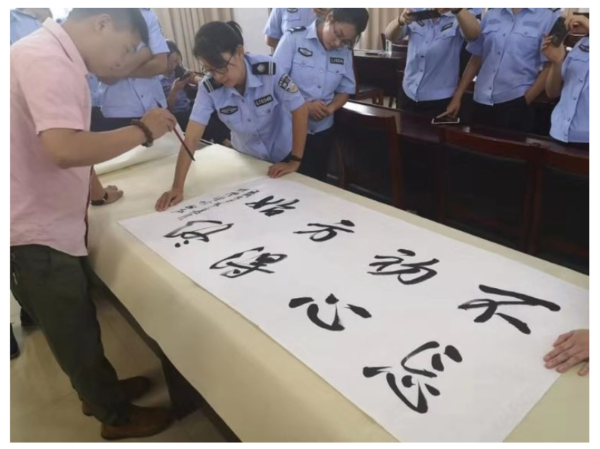 不忘
初心
方得
始终